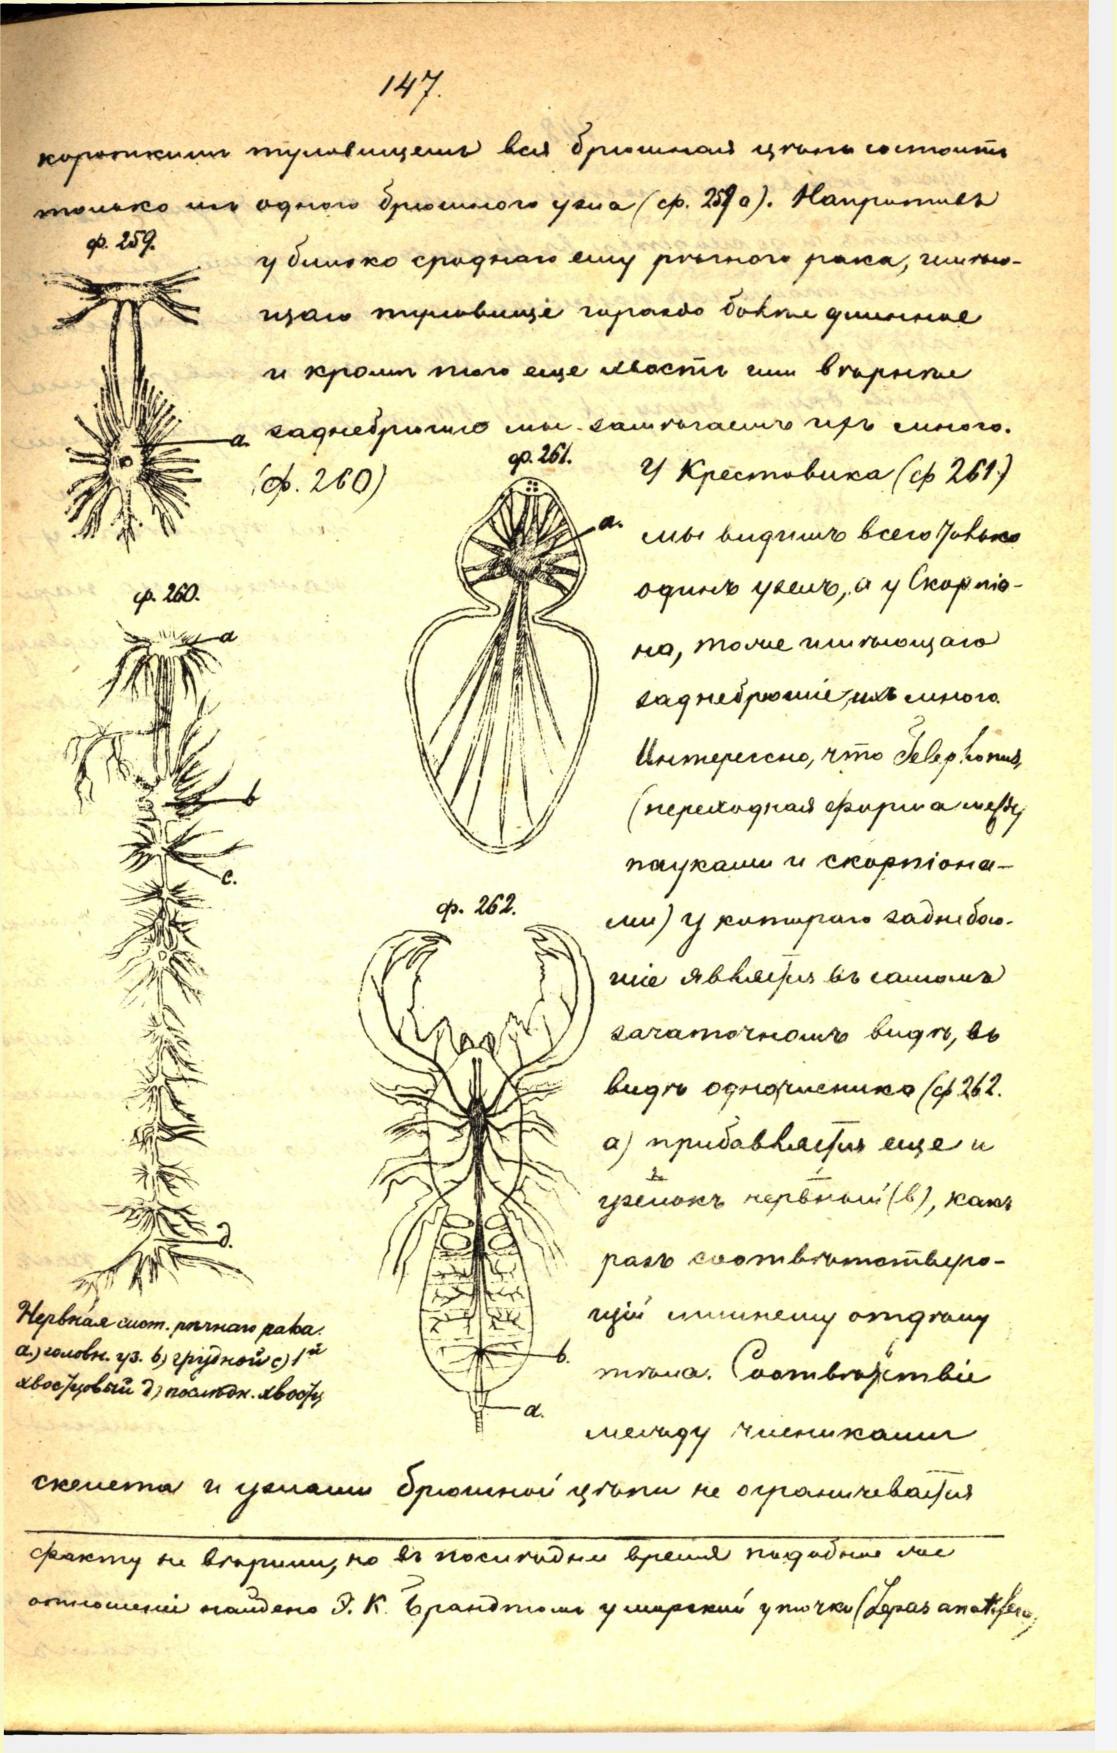 147.
короткимъ туловищемъ вся брюшная цѣпь состоитъ
только изъ одного брюшного узла (ф. 259 а). Напротивъ
ф. 259.
у близко сроднаго ему рѣчного рака, имѣю-
щаго туловище гораздо болѣе длинное
и кромѣ того еще хвостъ или вѣрнѣе
a. заднебрюшіе мы замѣчаемъ ихъ много.
(ф. 260)
ф. 261.
У Крестовика (ф 261)
a.
мы видимъ всего только
одинъ узелъ, а у Скорпіо-
ф. 260.
на, тоже имѣющаго
a
заднебрюшіе, ихъ много.
Интересно, что Telephonus,
(переходная форма между
b
пауками и скорпіона-
c.
ф. 262.
ми) у котораго заднебрю-
шіе является въ самомъ
зачаточномъ видѣ, въ
видѣ одночленика (ф 262.
а) прибавляется еще и
узелокъ нервный (b), какъ
разъ соотвѣтствую-
д.
щій лишнему отдѣлу
Нервная сист. рѣчнаго рака.
a.) головн. уз. b) грудной c) 1й
хвостцовый д) послѣдн. хвостц
b.
тѣла. Соотвѣтствіе
a.
между члениками
скелета и узлами брюшной цѣпи не ограничевается
факту не вѣрили, но въ послѣднее время подобное же
отношеніе найдено Э. К. Брандтомъ у морской уточки (Lepas anatifera)